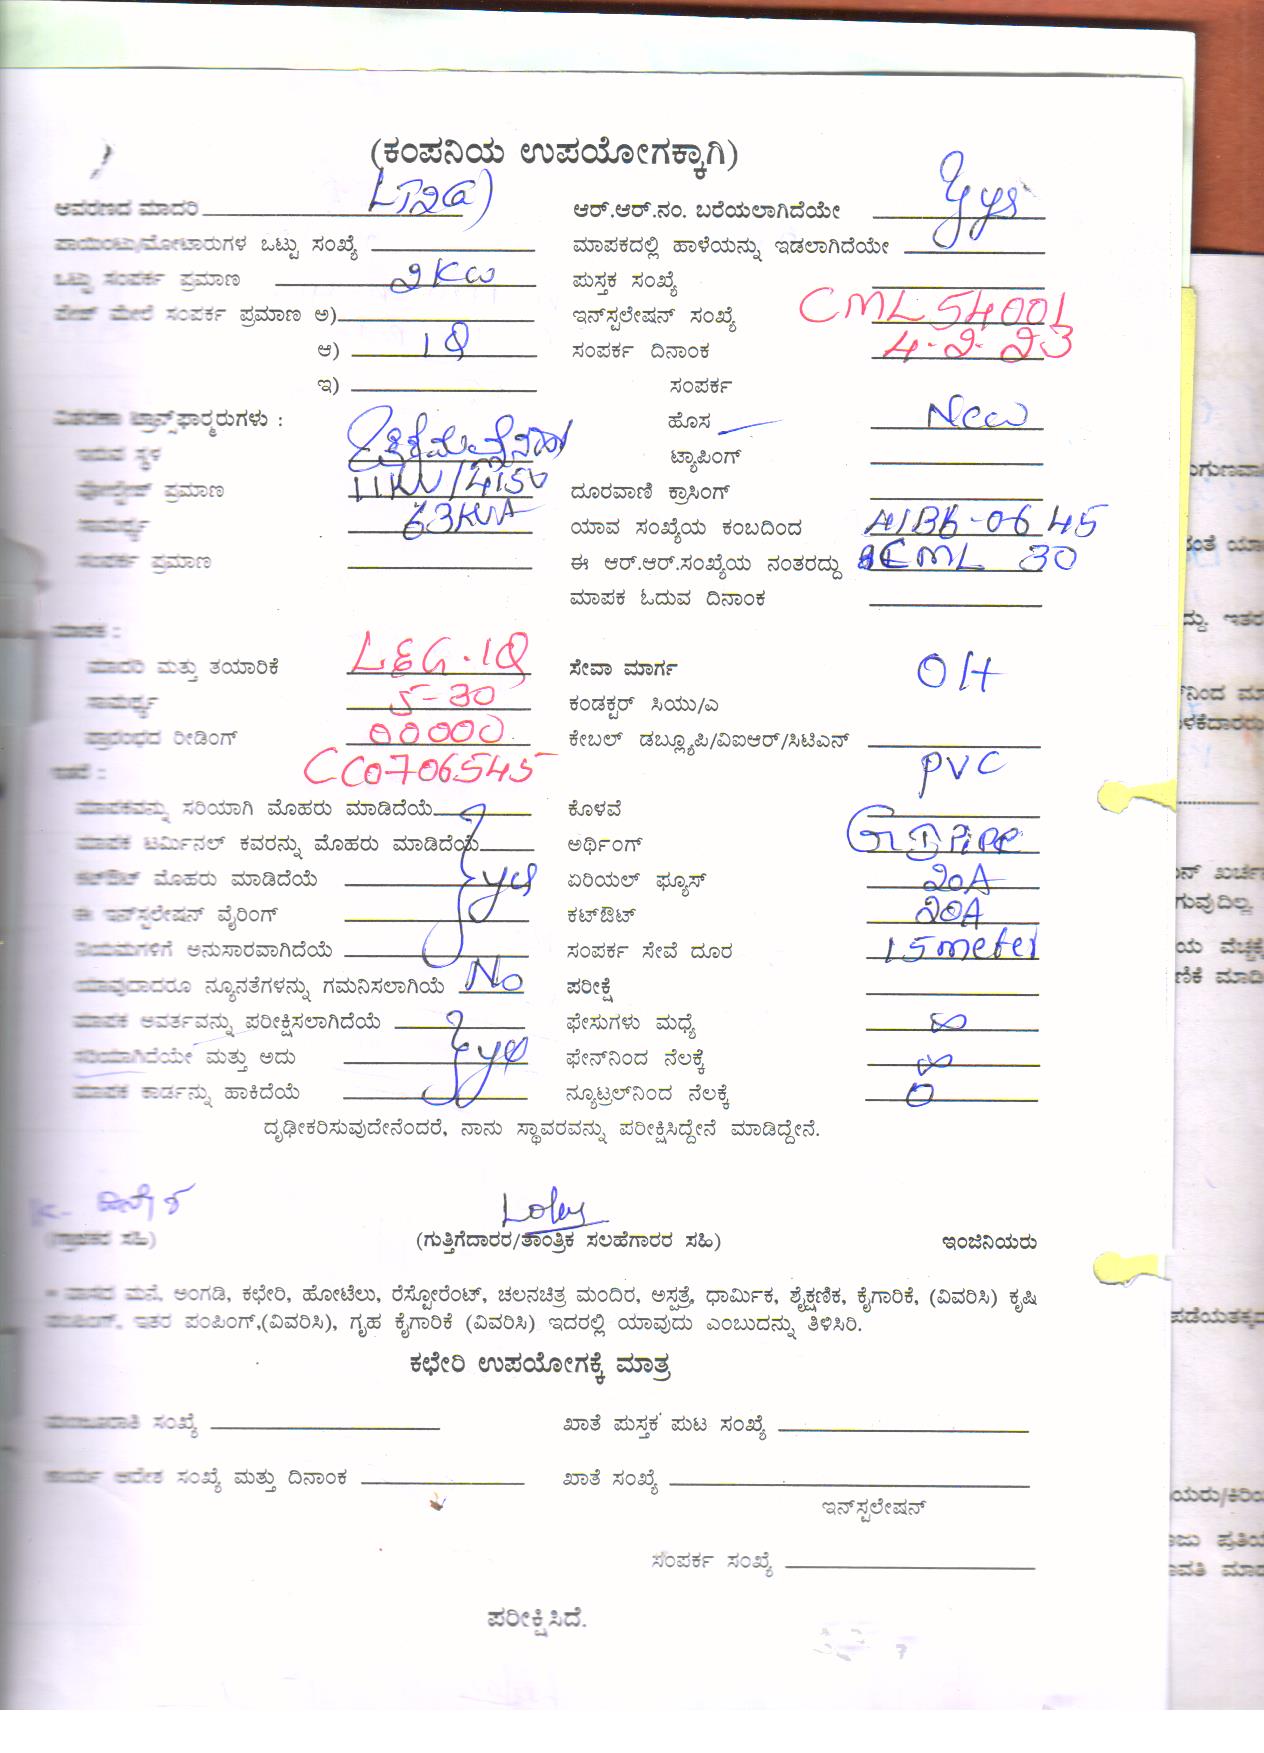 (ಕಂಪನಿಯ ಉಪಯೋಗಕ್ಕಾಗಿ)
ಆವರಣದ ಮಾದರಿ LT2(a) ಆರ್.ಆರ್.ನಂ. ಬರೆಯಲಾಗಿದೆಯೇ yes
ಪಾಯಿಂಟು/ಮೋಟಾರುಗಳ ಒಟ್ಟು ಸಂಖ್ಯೆ ಮಾಪಕದಲ್ಲಿ ಹಾಳೆಯನ್ನು ಇಡಲಾಗಿದೆಯೇ
ಒಟ್ಟು ಸಂಪರ್ಕ ಪ್ರಮಾಣ 2KW ಪುಸ್ತಕ ಸಂಖ್ಯೆ
ಪೇಜ್ ಮೇಲೆ ಸಂಪರ್ಕ ಪ್ರಮಾಣ ಅ) ಇನ್‌ಸ್ಟಲೇಷನ್ ಸಂಖ್ಯೆ CML54001
ಆ) 1Ø ಸಂಪರ್ಕ ದಿನಾಂಕ 4-2-23
ಇ) ಸಂಪರ್ಕ
ವಿತರಣಾ ಟ್ರಾನ್ಸ್‌ಫಾರ್ಮರುಗಳು : ಹೊಸ New
ಇರುವ ಸ್ಥಳ ಟ್ಯಾಪಿಂಗ್
ವೋಲ್ಟೇಜ್ ಪ್ರಮಾಣ 11KV/415V ದೂರವಾಣಿ ಕ್ರಾಸಿಂಗ್
ಸಾಮರ್ಥ್ಯ 63KVA ಯಾವ ಸಂಖ್ಯೆಯ ಕಂಬದಿಂದ
ಸಂಪರ್ಕ ಪ್ರಮಾಣ ಈ ಆರ್.ಆರ್.ಸಂಖ್ಯೆಯ ನಂತರದ್ದು CML 30
ಮಾಪಕ ಓದುವ ದಿನಾಂಕ
ಮಾಪಕ :
ಮಾದರಿ ಮತ್ತು ತಯಾರಿಕೆ L&G-1Ø ಸೇವಾ ಮಾರ್ಗ OH
ಸಾಮರ್ಥ್ಯ 5-30 ಕಂಡಕ್ಟರ್ ಸಿಯು/ಎ
ಪ್ರಾರಂಭದ ರೀಡಿಂಗ್ 00000 ಕೇಬಲ್ ಡಬ್ಲ್ಯೂಪಿ/ವಿಐಆರ್/ಸಿಟಿಎನ್
ಇತರೆ : CC0706545 PVC
ಮಾಪಕವನ್ನು ಸರಿಯಾಗಿ ಮೊಹರು ಮಾಡಿದೆಯೆ ಕೊಳವೆ
ಮಾಪಕ ಟರ್ಮಿನಲ್ ಕವರನ್ನು ಮೊಹರು ಮಾಡಿದೆಯೆ ಅರ್ಥಿಂಗ್ GI Pipe
ಕಟ್‌ಔಟ್ ಮೊಹರು ಮಾಡಿದೆಯೆ yes ಏರಿಯಲ್ ಫ್ಯೂಸ್ 20A
ಈ ಇನ್‌ಸ್ಟಲೇಷನ್ ವೈರಿಂಗ್ ಕಟ್‌ಔಟ್ 20A
ನಿಯಮಗಳಿಗೆ ಅನುಸಾರವಾಗಿದೆಯೆ ಸಂಪರ್ಕ ಸೇವೆ ದೂರ 15 meter
ಯಾವುದಾದರೂ ನ್ಯೂನತೆಗಳನ್ನು ಗಮನಿಸಲಾಗಿಯೆ No ಪರೀಕ್ಷೆ
ಮಾಪಕ ಅವರ್ತವನ್ನು ಪರೀಕ್ಷಿಸಲಾಗಿದೆಯೆ ಫೇಸುಗಳು ಮಧ್ಯೆ ∞
ಸರಿಯಾಗಿದೆಯೇ ಮತ್ತು ಅದು yes ಫೇಸ್‌ನಿಂದ ನೆಲಕ್ಕೆ ∞
ಮಾಪಕ ಕಾರ್ಡನ್ನು ಹಾಕಿದೆಯೆ ನ್ಯೂಟ್ರಲ್‌ನಿಂದ ನೆಲಕ್ಕೆ 0
ದೃಢೀಕರಿಸುವುದೇನೆಂದರೆ, ನಾನು ಸ್ಥಾವರವನ್ನು ಪರೀಕ್ಷಿಸಿದ್ದೇನೆ ಮಾಡಿದ್ದೇನೆ.
(ಗ್ರಾಹಕರ ಸಹಿ) (ಗುತ್ತಿಗೆದಾರರ/ತಾಂತ್ರಿಕ ಸಲಹೆಗಾರರ ಸಹಿ) ಇಂಜಿನಿಯರು
* ವಾಸದ ಮನೆ, ಅಂಗಡಿ, ಕಛೇರಿ, ಹೋಟೆಲು, ರೆಸ್ಟೋರೆಂಟ್, ಚಲನಚಿತ್ರ ಮಂದಿರ, ಅಸ್ಪತ್ರೆ, ಧಾರ್ಮಿಕ, ಶೈಕ್ಷಣಿಕ, ಕೈಗಾರಿಕೆ, (ವಿವರಿಸಿ) ಕೃಷಿ
ಪಂಪಿಂಗ್, ಇತರ ಪಂಪಿಂಗ್,(ವಿವರಿಸಿ), ಗೃಹ ಕೈಗಾರಿಕೆ (ವಿವರಿಸಿ) ಇದರಲ್ಲಿ ಯಾವುದು ಎಂಬುದನ್ನು ತಿಳಿಸಿರಿ.
ಕಛೇರಿ ಉಪಯೋಗಕ್ಕೆ ಮಾತ್ರ
ಮಂಜೂರಾತಿ ಸಂಖ್ಯೆ ಖಾತೆ ಪುಸ್ತಕ ಪುಟ ಸಂಖ್ಯೆ
ಕಾರ್ಯ ಆದೇಶ ಸಂಖ್ಯೆ ಮತ್ತು ದಿನಾಂಕ ಖಾತೆ ಸಂಖ್ಯೆ
ಇನ್‌ಸ್ಟಲೇಷನ್
ಸಂಪರ್ಕ ಸಂಖ್ಯೆ
ಪರೀಕ್ಷಿಸಿದೆ.